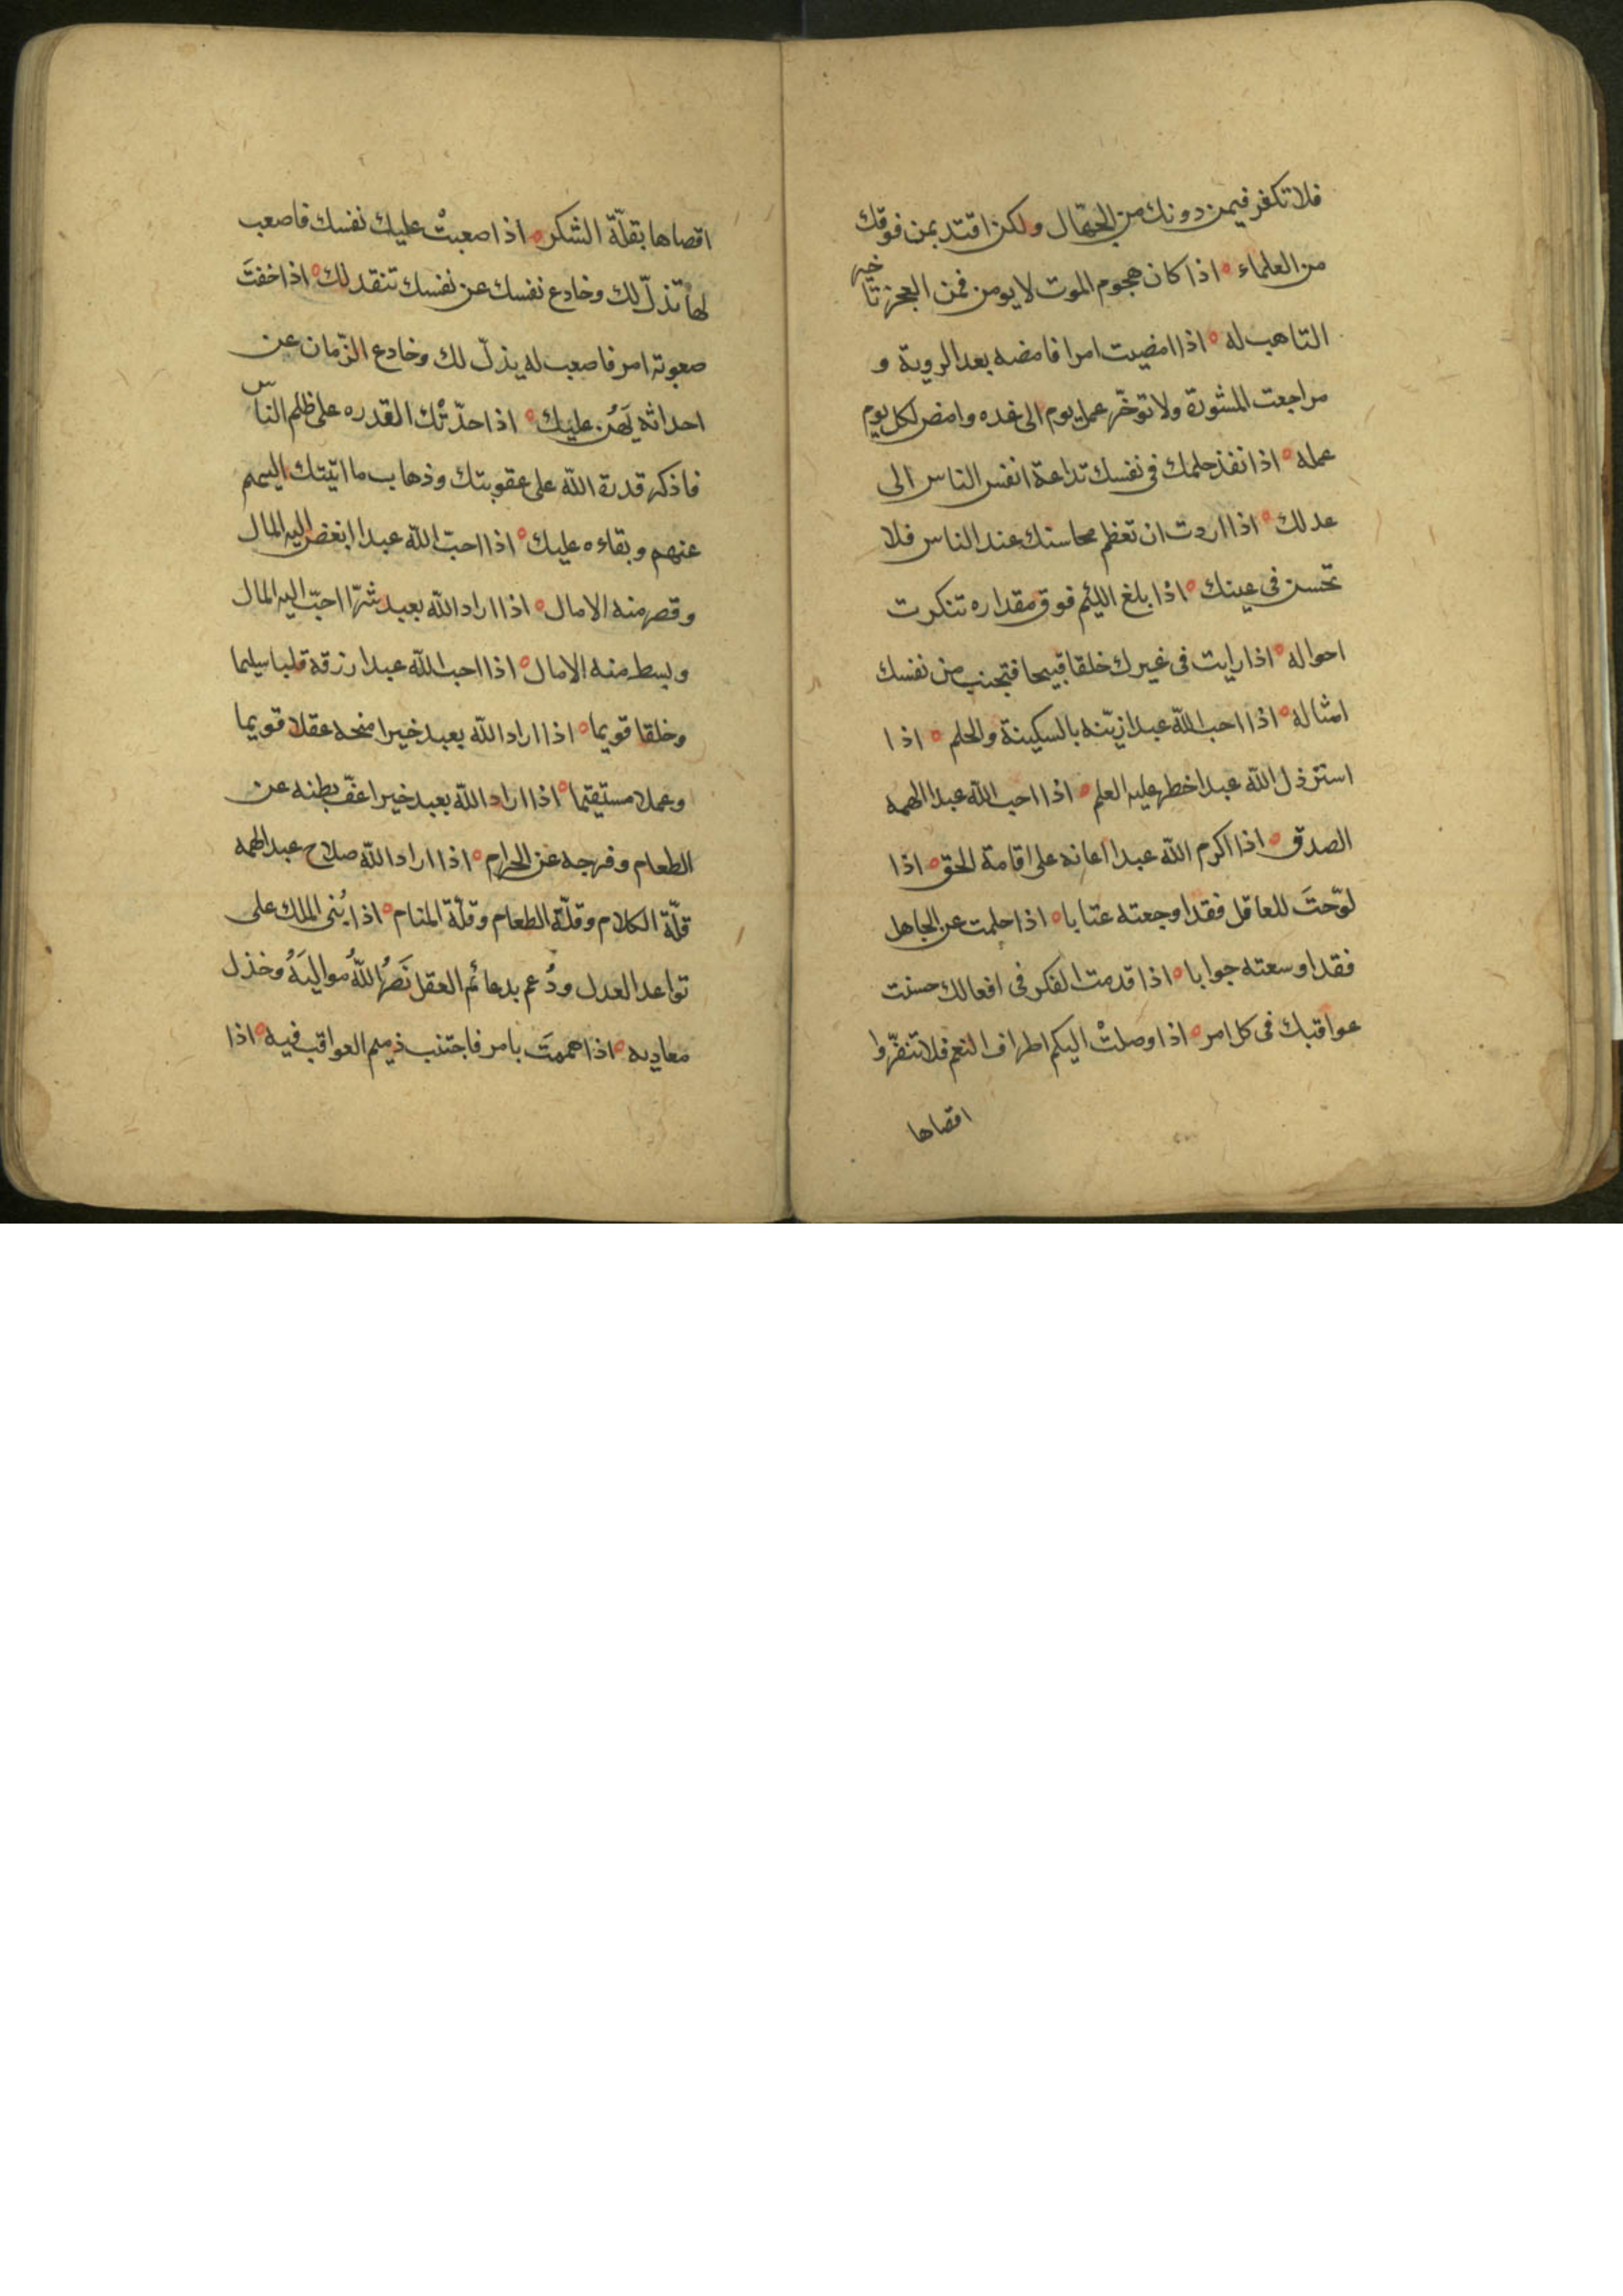 فلا تكفر فيمن دونك من الجهّال ولكن اقتد بمن فوقك
من العلماء ه اذا كان هجوم الموت لا يومن فمن العجز تاخير
التاهب له ه اذا امضيت امرا فامضه بعد الروية و
مراجعت المشورة ولا توخّر عمل يوم الى غده وامض لكل يوم
عمله ه اذا نفذ حلمك فى نفسك تداعة انفس الناس الى
عدلك ه اذا اردت ان تعظم محاسنك عند الناس فلا
تحسن فى عينك ه اذا بلغ اللئيم فوق مقداره تنكرت
احواله ه اذا رايت فى غيرك خلقا قبيحا فتجنب من نفسك
امثاله ه اذا احب اللّه عبدا زيّنه بالسكينة والحلم ه اذا
استرذل اللّه عبدا خطر عليه العلم ه اذا احب اللّه عبدا الهمه
الصدق ه اذا اكرم اللّه عبدا اعانه على اقامة الحق ه اذا
لوّحتَ للعاقل فقد اوجعته عتابا ه اذا حلمت عن الجاهل
فقد اوسعته جوابا ه اذا قدمت الفكر فى افعالك حسنت
عواقبك فى كل امر ه اذا وصلتْ اليكم اطراف النعم فلا تنفّروا
اقصاها
اقصاها بقلّة الشكر ه اذا صعبتْ عليك نفسك فاصعب
لها تذلّ لك وخادع نفسك عن نفسك تنقد لك ه اذا خفتَ
صعوبة امر فاصعب له يذلّ لك وخادع الزّمان عن
احداثه يَهُن عليك ه اذا حدّثْك القدره على ظلم الناس
فاذكر قدرة اللّه على عقوبتك وذهاب ما اتيتك اليهم
عنهم وبقاءه عليك ه اذا احبّ اللّه عبدا ابغض اليه المال
وقصر منه الامال ه اذا اراد اللّه بعبد شرّا احبّ اليه المال
وبسط منه الامال ه اذا احب اللّه عبدا رزقة قلبا سليما
وخلقا قويما ه اذا اراد اللّه بعبد خيرا منحه عقلا قويما
وعملا مستقيما ه اذا اراد اللّه بعبد خيرا عفّ بطنه عن
الطعام وفرجه عن الحرام ه اذا اراد اللّه صلاح عبد الهمه
قلّة الكلام وقلّة الطعام وقلّة المنام ه اذا بُنى الملك على
قواعد العدل ودُعم بدعائم العقل نَصَرُ اللّهُ مواليَهُ وخذل
معاديه ه اذا هممتَ بامر فاجتنب ذميم العواقب فيه ه اذا